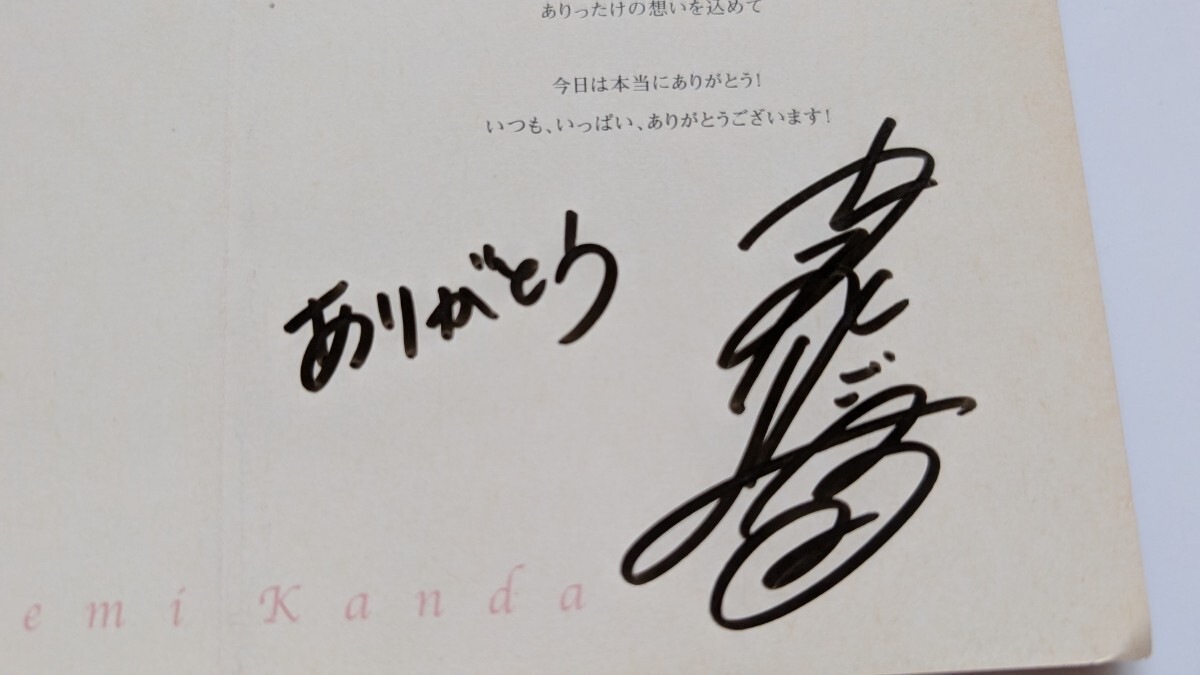 ありったけの想いを込めて
今日は本当にありがとう!
いつも、いっぱい、ありがとうございます!
ありがとう
emi Kanda